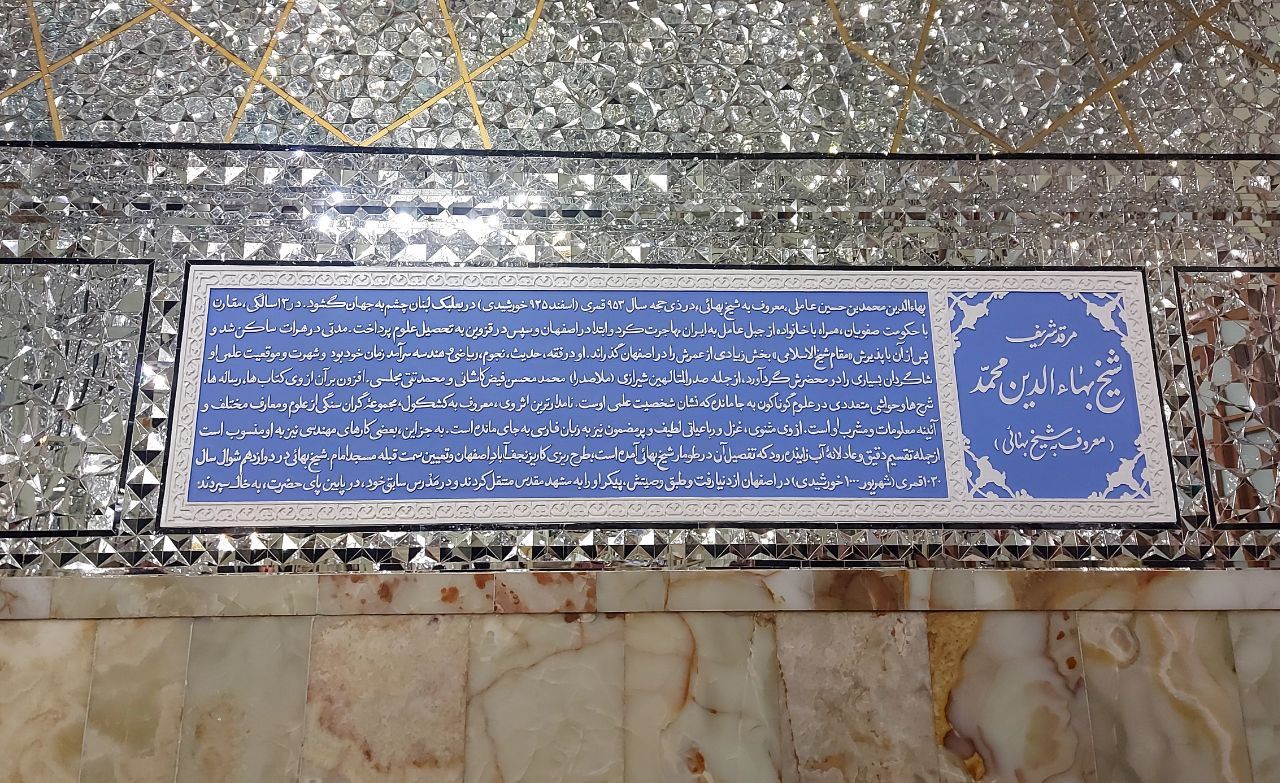 مرقد شریف
شیخ بهاء الدین محمّد
(معروف به شیخ بهائی)
بهاءالدین محمد بن حسین عاملی، معروف به شیخ بهائی، در ذی حجه سال ۹۵۳ قمری (اسفند ۹۲۵ خورشیدی) در بعلبک لبنان چشم به جهان گشود. در ۱۳ سالگی، مقارن
با حکومت صفویان، همراه با خانواده از جبل عامل به ایران مهاجرت کرد و ابتدا در اصفهان و سپس در قزوین به تحصیل علوم پرداخت. مدتی در هرات ساکن شد و
پس از آن با پذیرش «مقام شیخ الاسلامی» بخش زیادی از عمرش را در اصفهان گذراند. او در فقه، حدیث، نجوم، ریاضی و هندسه سرآمد زمان خود بود و شهرت و موقعیت علمی او
شاگردان بسیاری را در محضرش گرد آورد، از جمله صدرالمتألهین شیرازی (ملاصدرا) محمد محسن فیض کاشانی و محمد تقی مجلسی. افزون بر آن از وی کتاب ها، رساله ها،
شرح ها و حواشی متعددی در علوم گوناگون به جا مانده که نشان شخصیت علمی اوست. نامدارترین اثر وی، معروف به کشکول، مجموعه گران سنگی از علوم و معارف مختلف و
آئینه معلومات و مشرب او است. از وی مثنوی، غزل و رباعیاتی لطیف و پرمضمون نیز به زبان فارسی به جای مانده است. به جز این، بعضی کارهای مهندسی نیز به او منسوب است
از جمله تقسیم دقیق و عادلانهٔ آب زاینده رود که تفصیل آن در طومار شیخ بهائی آمده است؛ طرح ریزی کاریز نجف آباد اصفهان و تعیین سمت قبله مسجد امام. شیخ بهائی در دوازدهم شوال سال
۱۰۳۰ قمری (شهریور ۱۰۰۰ خورشیدی) در اصفهان از دنیا رفت و طبق وصیتش، پیکر او را به مشهد مقدس منتقل کردند و در مَدرَس سابق خود، در پایین پای حضرت، به خاک سپردند.